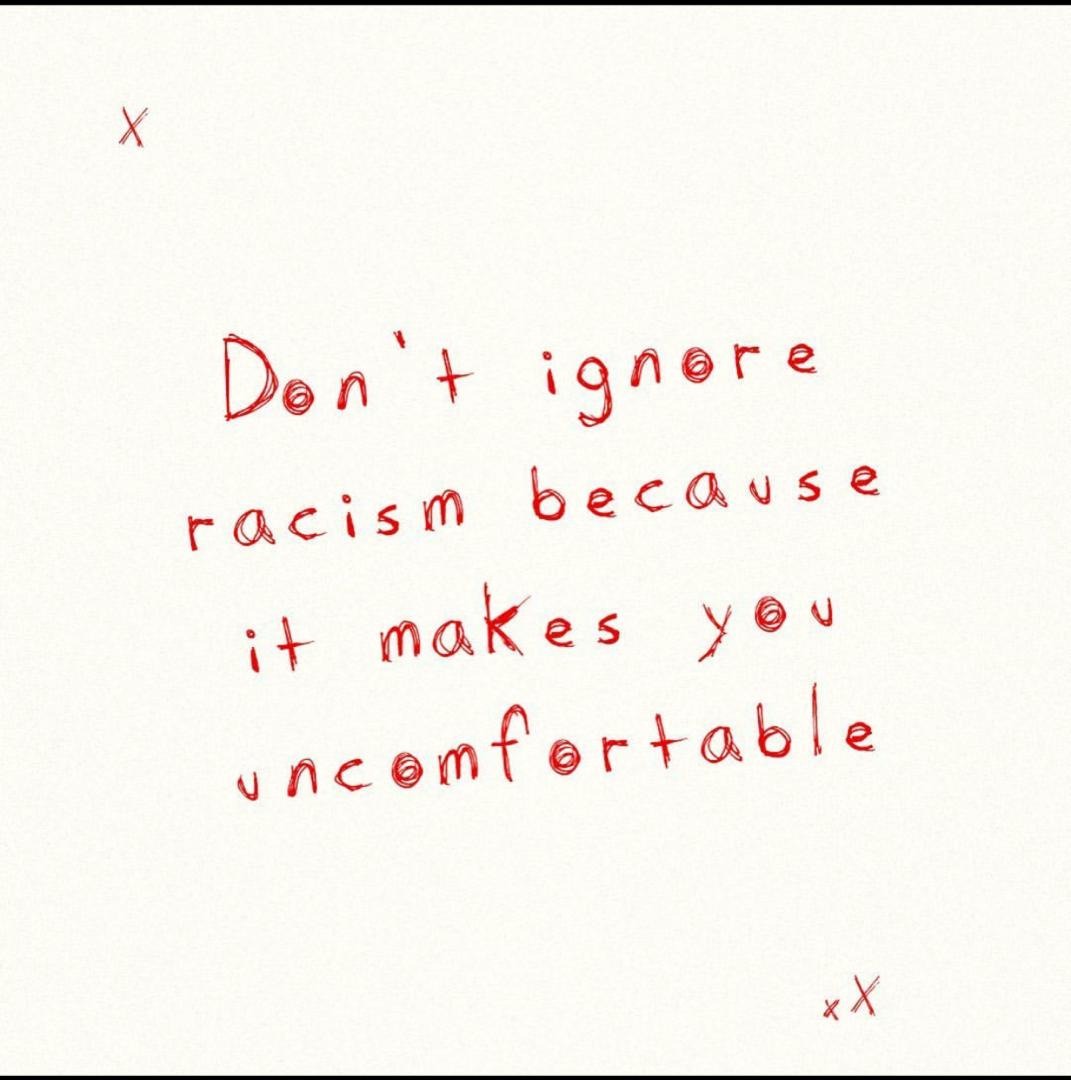 X
Don't ignore
racism because
it makes you
uncomfortable
x X